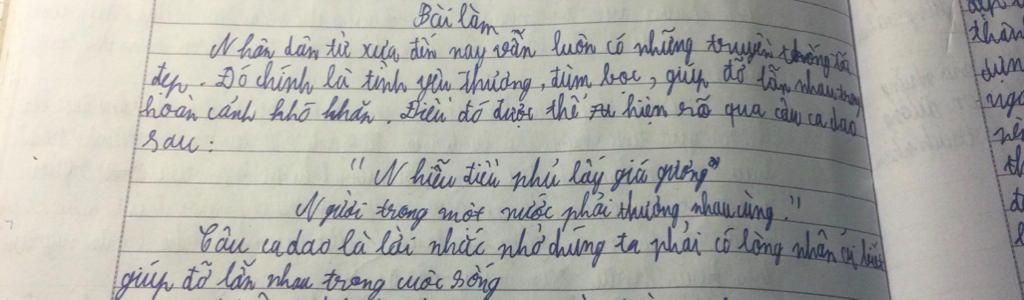 Bài làm
Nhân dân từ xưa đến nay vẫn luôn có những truyền thống tốt
đẹp. Đó chính là tình yêu thương, đùm bọc, giúp đỡ lẫn nhau trong
hoàn cảnh khó khăn. Điều đó được thể hiện rõ qua câu ca dao
sau:
"Nhiễu điều phủ lấy giá gương
Người trong một nước phải thương nhau cùng."
Câu ca dao là lời nhắc nhở chúng ta phải có lòng nhân ái, biết
giúp đỡ lẫn nhau trong cuộc sống